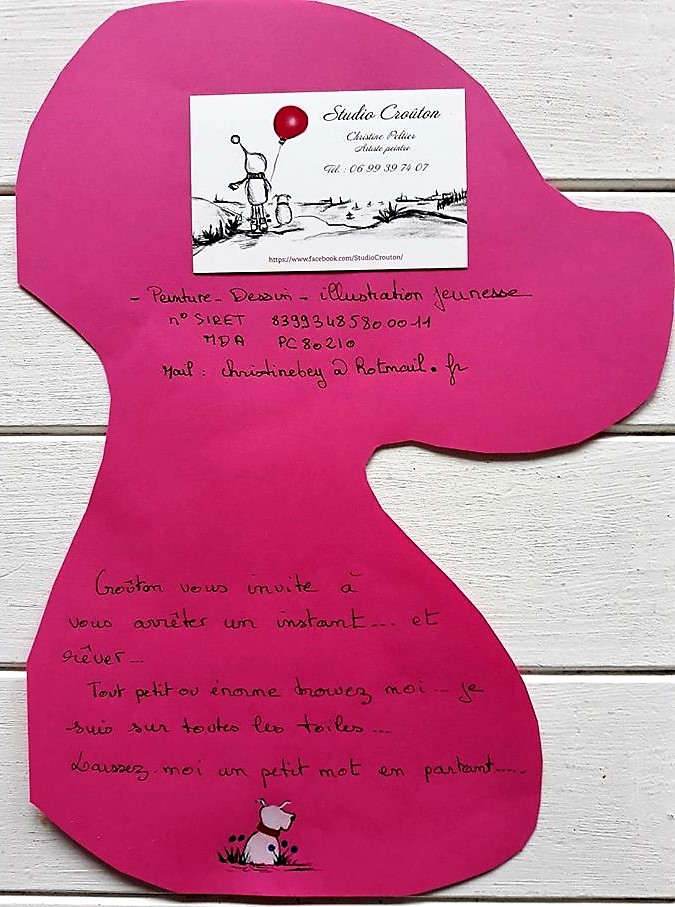 Studio Croûton
Christine Peltier
Artiste peintre
Tél. : 06 99 39 74 07
https://www.facebook.com/StudioCrouton/
- Peinture - Dessin - illustration jeunesse
n° SIRET 83993485800011
MDA PC80210
Mail : christinebey@hotmail.fr
Croûton vous invite à
vous arrêter un instant... et
rêver...
Tout petit ou énorme trouvez moi... je
suis sur toutes les toiles...
Laissez-moi un petit mot en partant.....